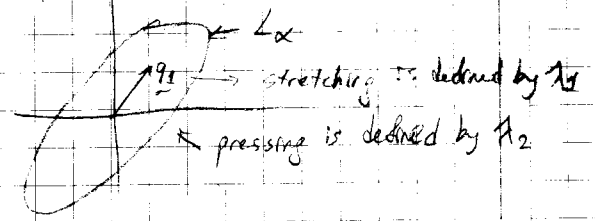 L_α
q_1 → stretching is defined by λ_1
pressing is defined by λ_2